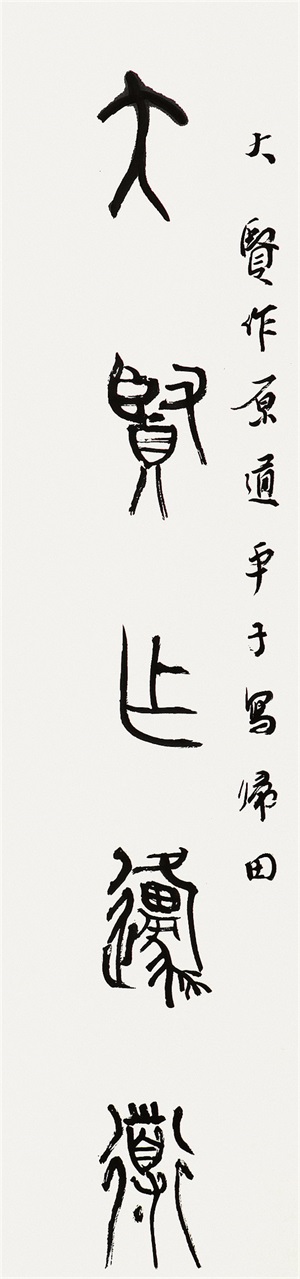 大賢作原道平子寫歸田
大賢乍邍道